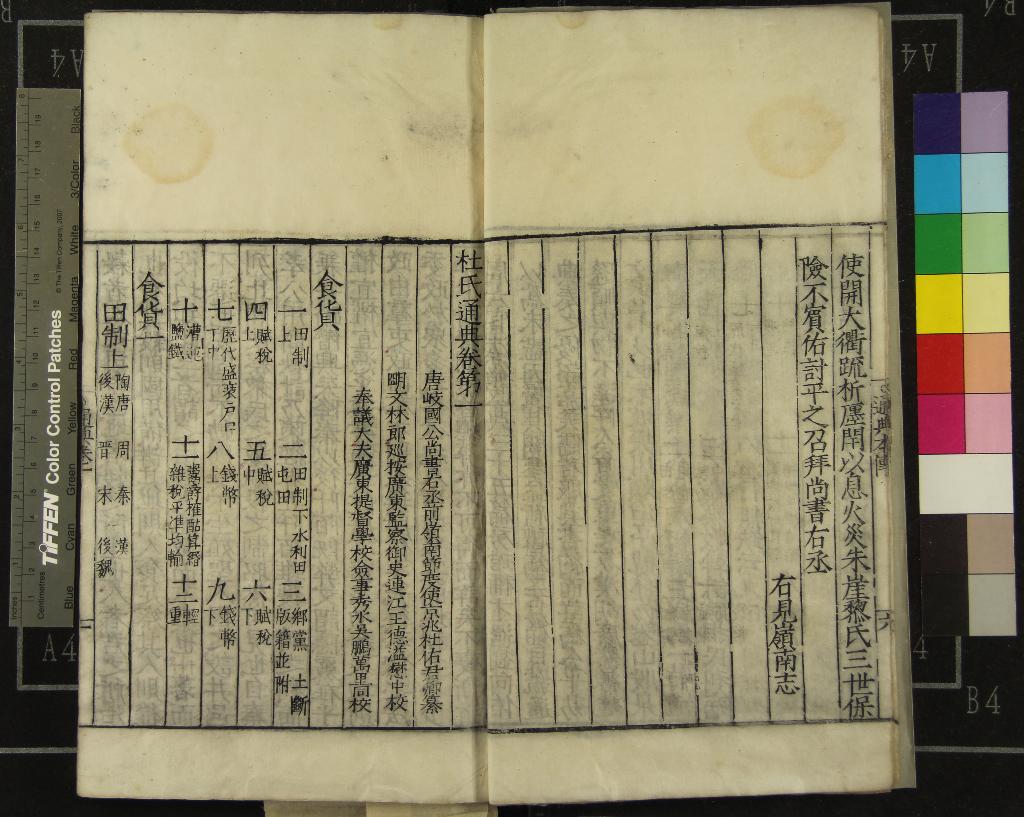 使開大衢疏析廛閈以息火災朱崖黎氏三世保
險不賓佑討平之召拜尚書右丞
右見嶺南志
杜氏通典卷第一
唐岐國公尚書右丞前嶺南節度使京兆杜佑君卿纂
明文林郎巡按廣東監察御史連江王德溢懋中校
奉議大夫廣東提督學校僉事秀水吳鵬萬里同校
食貨
一 田制上 二 田制下水利田屯田 三 鄉黨 土斷版籍並附
四 賦稅上 五 賦稅中 六 賦稅下
七 歷代盛衰戶口丁中 八 錢幣上 九 錢幣下
十 漕運鹽鐵 十一 鬻爵榷酤算緡雜稅平準均輸 十二 輕重
食貨一
田制上 陶唐 周 秦 漢 後漢 晉 宋 後魏
通典本傳
六
A4
A4
A4
B4
TIFFEN Color Control Patches
© The Tiffen Company, 2007
Inches
Centimetres
Blue
Cyan
Green
Yellow
Red
Magenta
White
3/Color
Black